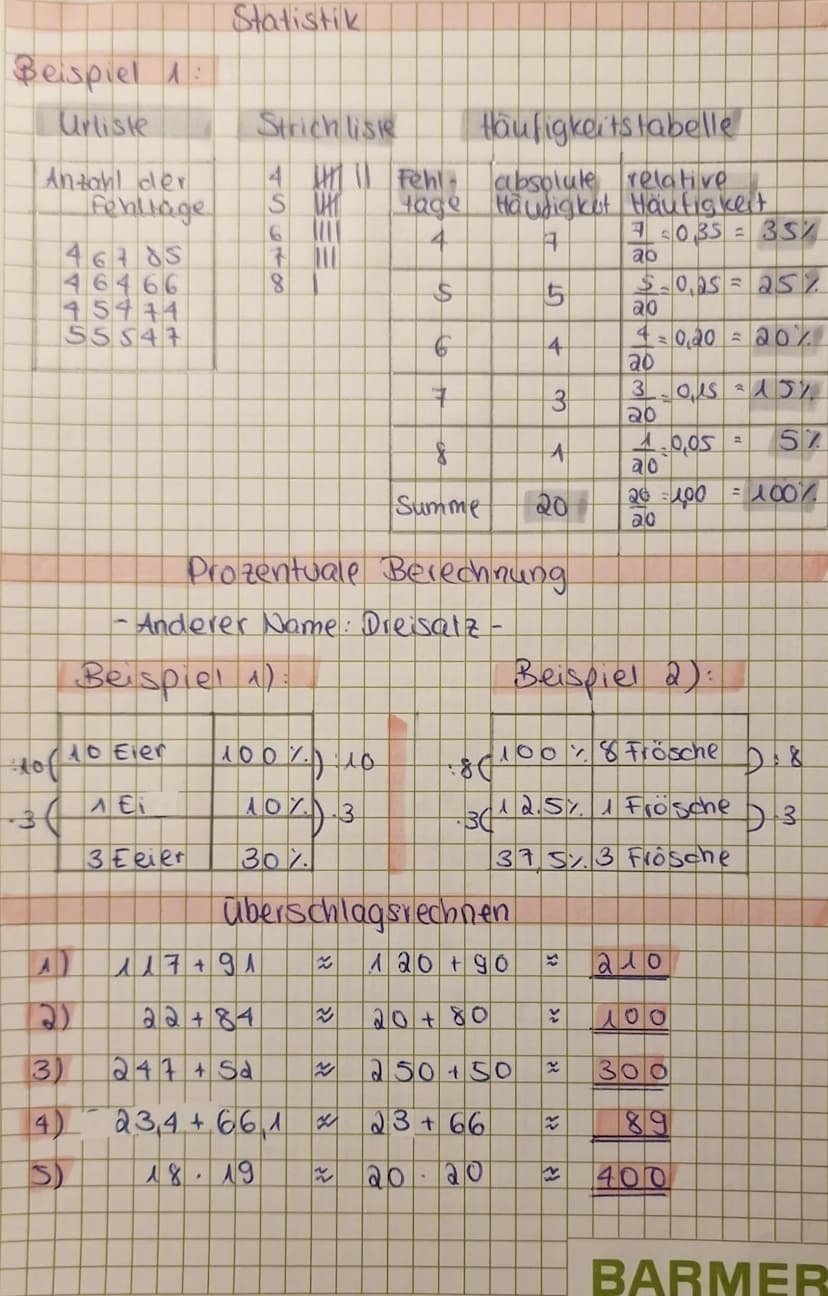 Statistik
Beispiel 1:
Urliste Strichliste Häufigkeitstabelle
Anzahl der
Fehltage
4 6 7 8 5
4 6 4 6 6
4 5 4 7 4
5 5 5 4 7
4 |||| ||
5 ||||
6 ||||
7 |||
8 |
Fehl- absolute relative
tage Häufigkeit Häufigkeit
4 7 7/20 = 0,35 = 35%
5 5 5/20 = 0,25 = 25%
6 4 4/20 = 0,20 = 20%
7 3 3/20 = 0,15 = 15%
8 1 1/20 = 0,05 = 5%
Summe 20 20/20 = 1,00 = 100%
Prozentuale Berechnung
- Anderer Name: Dreisatz -
Beispiel 1): Beispiel 2):
:10 ( 10 Eier 100% ) :10 :8 ( 100% 8 Frösche ) :8
·3 ( 1 Ei 10% ) ·3 ·3 ( 12,5% 1 Frösche ) ·3
3 Eeier 30% 37,5% 3 Frösche
Überschlagsrechnen
1) 117 + 91 ≈ 120 + 90 ≈ 210
2) 22 + 84 ≈ 20 + 80 ≈ 100
3) 247 + 52 ≈ 250 + 50 ≈ 300
4) 23,4 + 66,1 ≈ 23 + 66 ≈ 89
5) 18 · 19 ≈ 20 · 20 ≈ 400
BARMER